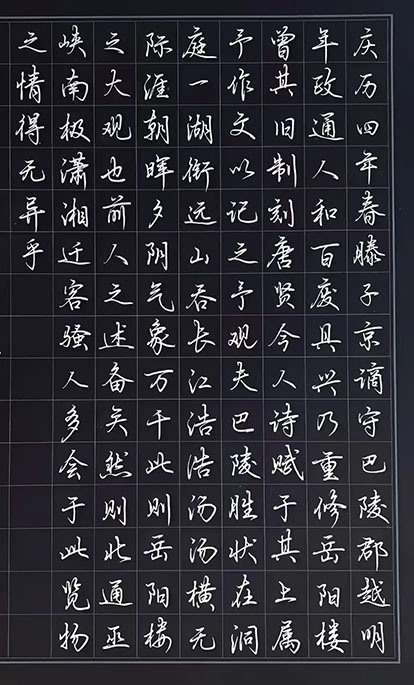 庆历四年春滕子京谪守巴陵郡越明
年政通人和百废具兴乃重修岳阳楼
曾其旧制刻唐贤今人诗赋于其上属
予作文以记之予观夫巴陵胜状在洞
庭一湖衔远山吞长江浩浩汤汤横无
际涯朝晖夕阴气象万千此则岳阳楼
之大观也前人之述备矣然则北通巫
峡南极潇湘迁客骚人多会于此览物
之情得无异乎